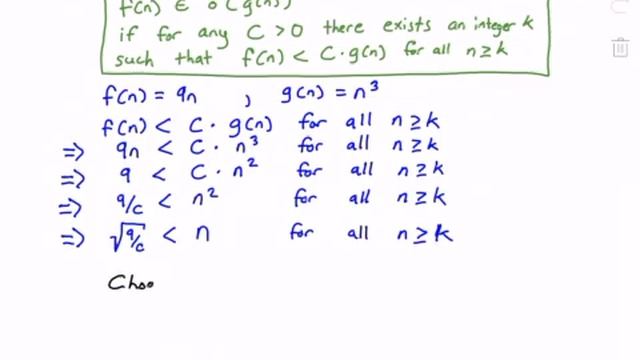 f(n) ∈ o(g(n))
if for any C > 0 there exists an integer k
such that f(n) < C · g(n) for all n ≥ k
f(n) = 9n , g(n) = n³
f(n) < C · g(n) for all n ≥ k
⇒ 9n < C · n³ for all n ≥ k
⇒ 9 < C · n² for all n ≥ k
⇒ 9/c < n² for all n ≥ k
⇒ √9/c < n for all n ≥ k
Choo